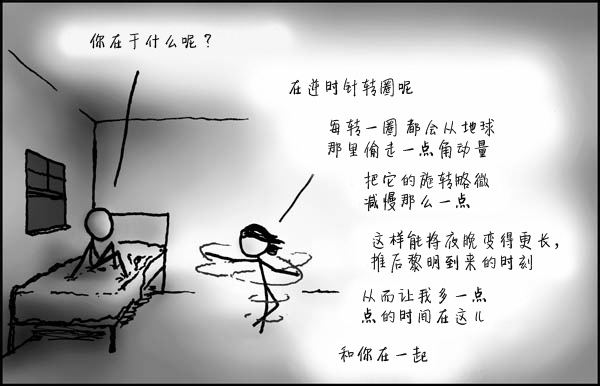 你在于什么呢？
在逆时针转圈呢
每转一圈都会从地球
那里偷走一点角动量
把它的旋转略微
减慢那么一点
这样能将夜晚变得更长，
推后黎明到来的时刻
从而让我多一点
点的时间在这儿
和你在一起